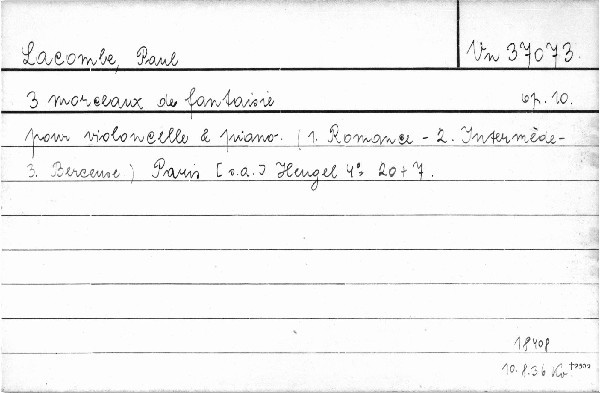 Lacombe, Paul Vn 37073.
3 morceaux de fantaisie op. 10.
pour violoncelle & piano. (1. Romance - 2. Intermède -
3. Berceuse) Paris [s.a.] Heugel 4° 20+7.
18408
10.8.36 Kv